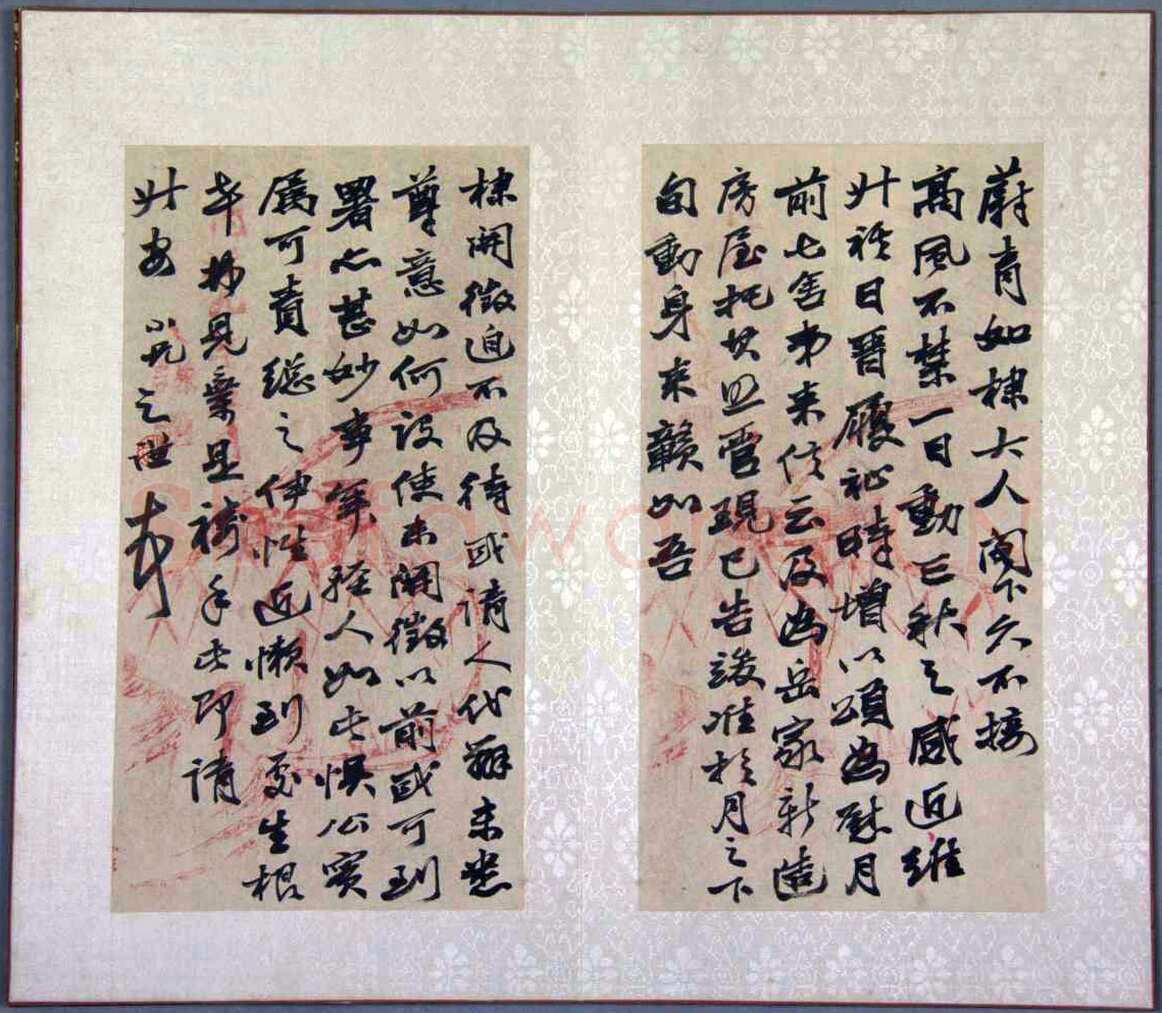 蔚青如棣大人閣下久不接
高風不禁一日動三秋之感近維
升祺日晋履祉時增以頌為慰月
前七舍弟来信云及為岳家新造
房屋托其照管現已告竣准於月之下
旬動身来贛如吾
棣開徵迫不及待或請人代辦未悉
尊意如何設使未開徵以前或可到
署亦甚妙事第經人如此惧公實
屬可責總之伊性近懶到處生根
年抄見棄是禱手此即请
升安 小兄之世